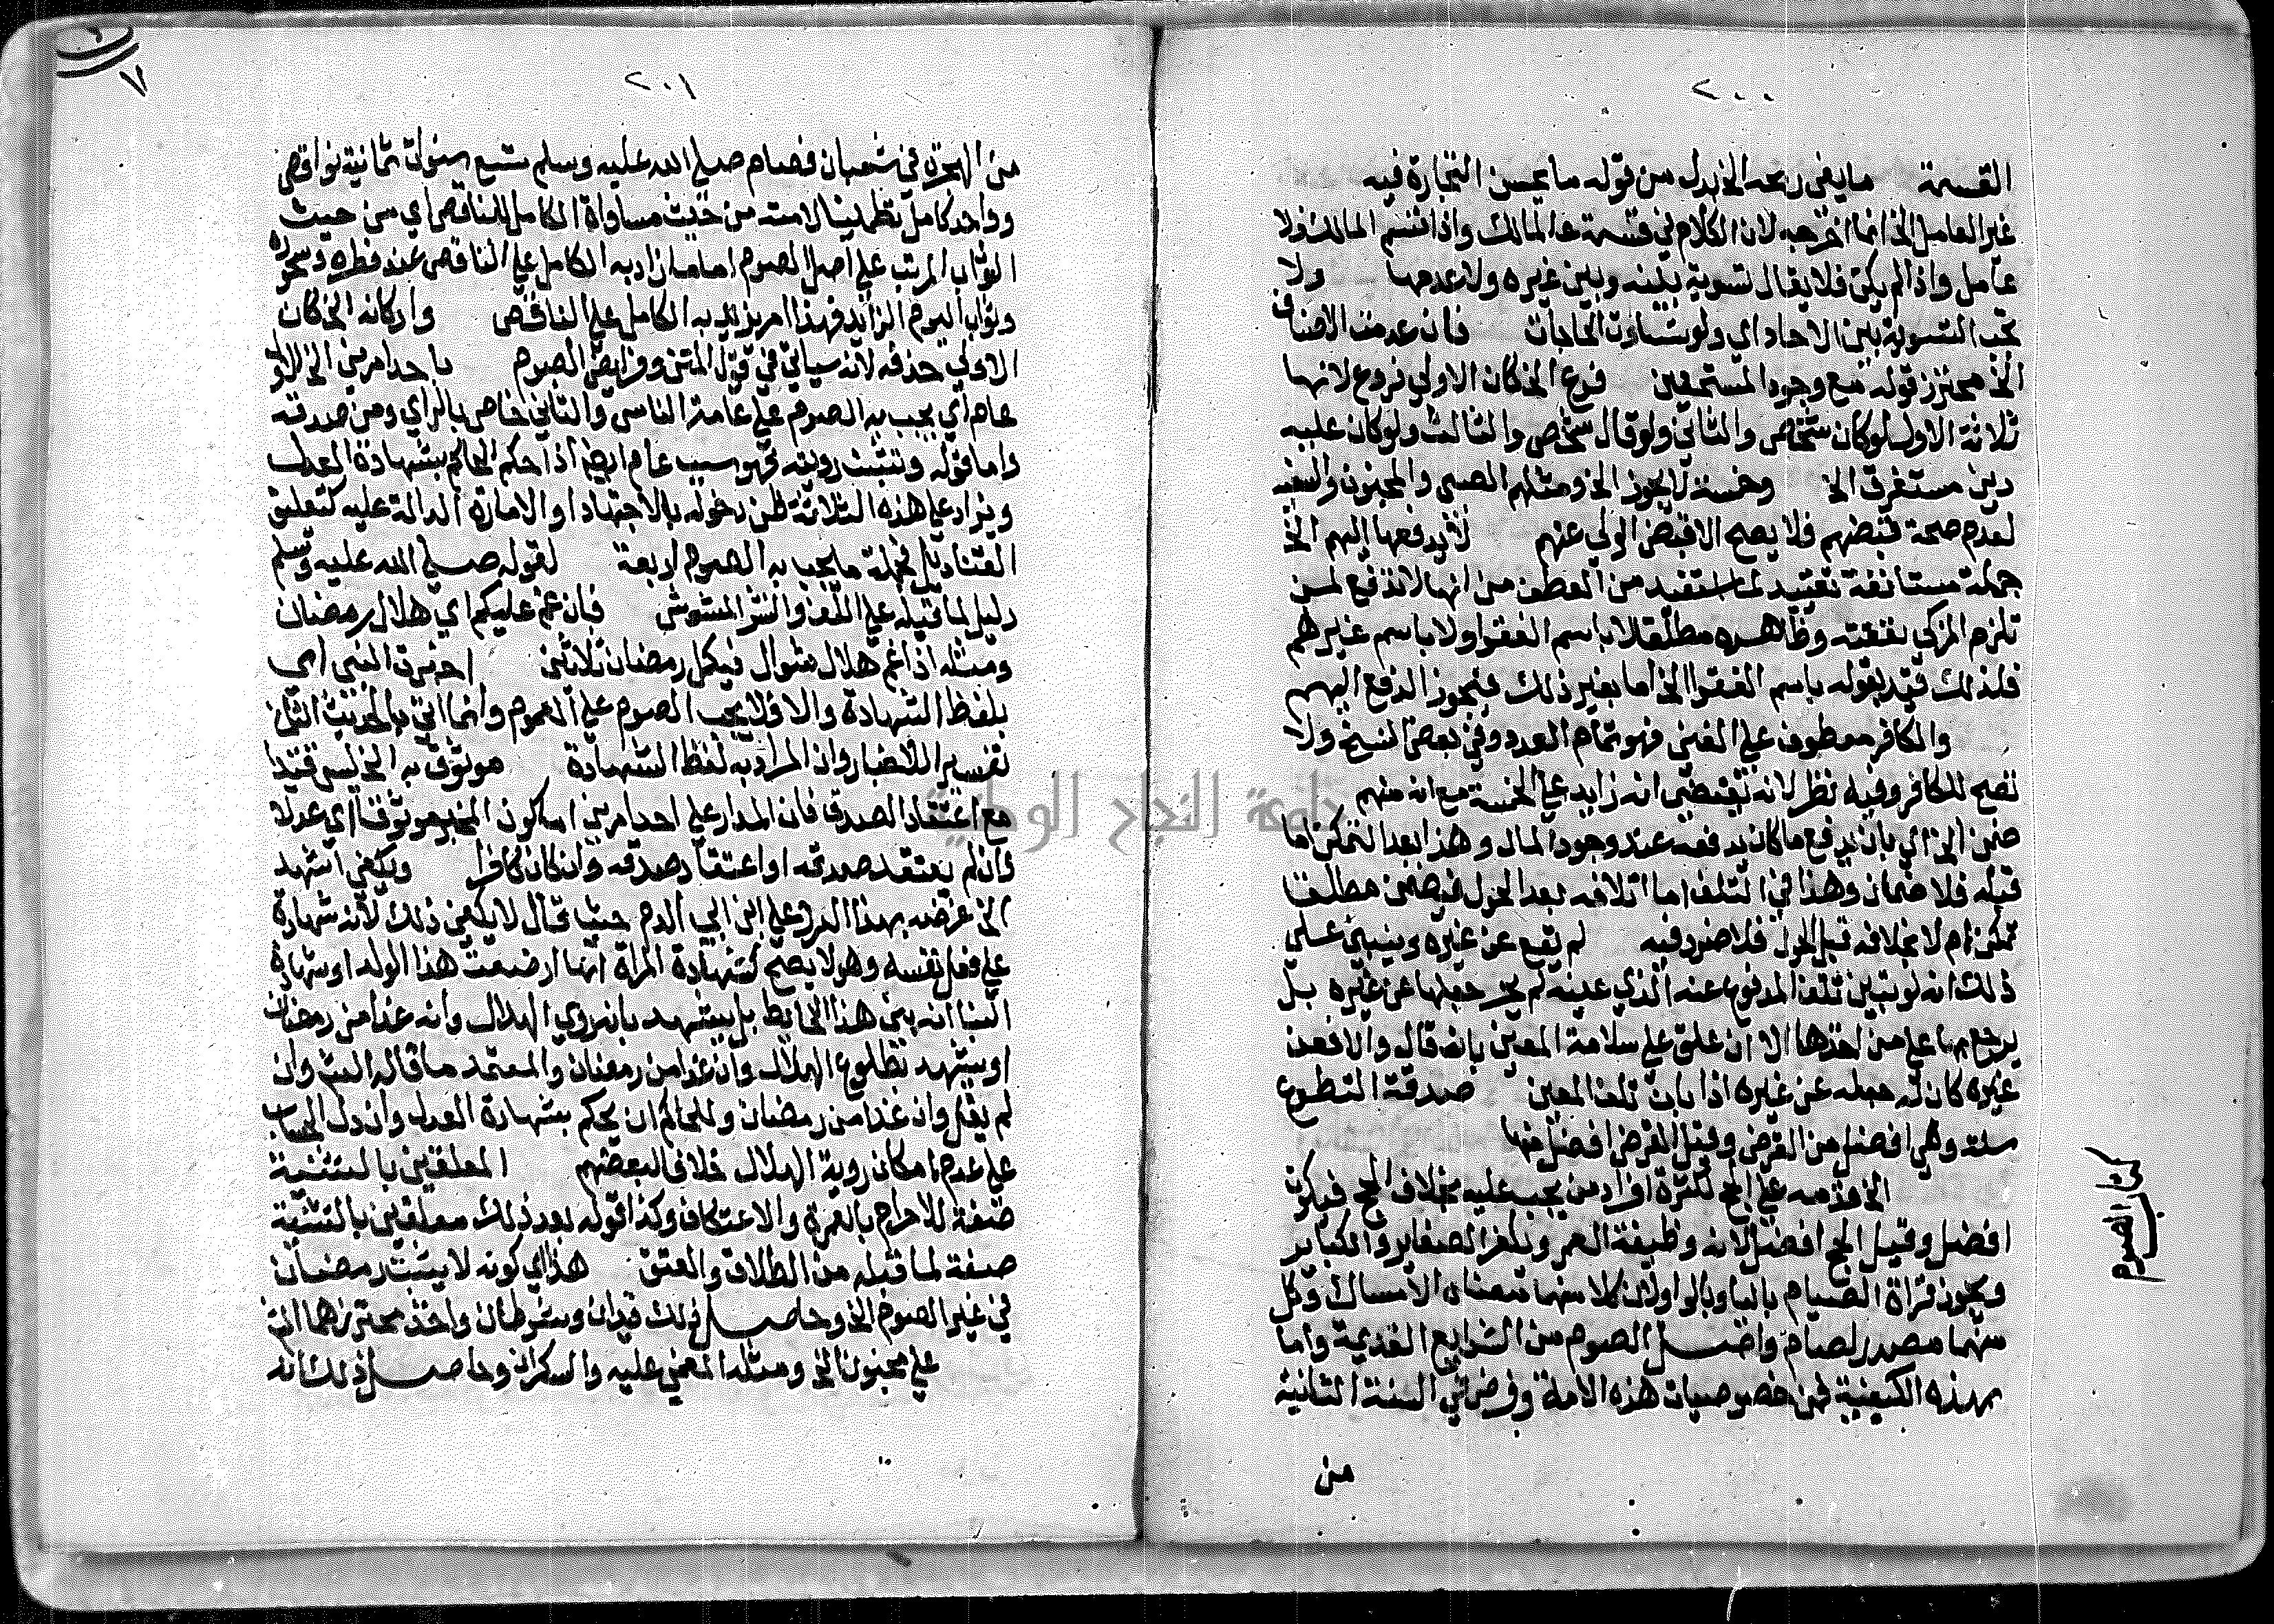 ٢٠٠
القسمة ما يفي ربحه الخ بدل من قوله ما يحسن التجارة فيه
غير العامل الخ انما اخرجه لان الكلام في قسمة المالك واذا قسم المالك فلا
عامل واذا لم يكن فلا يقال تسوية بينه وبين غيره ولا عدمها ولا
تجب التسوية بين الاحاد اي ولو تساوت الحاجات فان عدمت الاصناف
الخ محترز قوله مع وجود المستحقين فرع الخ كان الاولى فروع لانها
ثلاثة الاول لو كان شخص والثاني ولو قال شخص والثالث ولو كان عليه
دين مستغرق الخ وخمسة لا يجوز الخ ومثلهم الصبي والمجنون والسفيه
لعدم صحة قبضهم فلا يصح الا قبض الولي عنهم لا يدفعها اليهم الخ
جملة مستانفة تقييد لما استفيد من العطف من انها لا تدفع لمن
تلزم المزكي نفقته وظاهره مطلقا لا باسم الفقرا ولا باسم غيرهم
فلذلك قيد بقوله باسم الفقرا الخ اما بغير ذلك فيجوز الدفع اليهم
والكافر معطوف على الغني فهو تمام العدد وفي بعض النسخ ولا
تصح للكافر وفيه نظر لانه يقتضي انه زايد على الخمسة مع انه منهم
ضمن الخ اي بان يدفع ما كان يدفعه عند وجود المال وهذا بعد التمكن اما
قبله فلا ضمان وهذا في التلف اما اتلافه بعد الحول فيضمن مطلقا
تمكن ام لا بخلافه قبل الحول فلا ضرر فيه لم تقع عن غيره وينبني على
ذلك انه لو تبين تلف المدفوع عنه الذي عينه لم يجز جعلها عن غيره بل
يرجع بها على من اخذها الا ان علق على سلامة المعين بانه قال والا فعن
غيره كان له جعله عن غيره اذا بان تلف المعين صدقة التطوع
سنة وهي افضل من القرض وقيل القرض افضل منها
الخ قدمه على الحج لكثرة افراد من يجب عليه بخلاف الحج فيكون
افضل وقيل الحج افضل لانه وظيفة العمر ويكفر الصغاير والكباير
ويجوز قراة الصيام باليا وبالواو لان كلا منهما معناه الامساك وكل
منهما مصدر لصام واصل الصوم من الشرايع القديمة واما
بهذه الكيفية فمن خصوصيات هذه الامة وفرض في السنة الثانية
من
كتاب الصوم
٢٠١
من الهجرة في شعبان فصام صلى الله عليه وسلم تسع سنوات ثمانية نواقص
وواحد كامل تطمينا لامته من حيث مساواة الكامل للناقص اي من حيث
الثواب المرتب على اصل الصوم اما ما زاد به الكامل على الناقص عند فطره وسحوره
وثواب اليوم الزايد فهذا امر يزيد به الكامل على الناقص واركانه الخ كان
الاولى حذفه لانه سياتي في قول المتن وفرايض الصوم باحد امرين الخ الاول
عام اي يجب به الصوم على عامة الناس والثاني خاص بالراي ومن صدقه
واما قوله وتثبت رويته فهو سبب عام ايضا اذا حكم الحاكم بشهادة العدل
ويزاد على هذه الثلاثة ظن دخوله بالاجتهاد او الامارة الدالة عليه كتعليق
القناديل فجملة ما يجب به الصوم اربعة لقوله صلى الله عليه وسلم
دليل لما قبله على اللف والنشر المشوش فان غم عليكم اي هلال رمضان
ومثله اذا غم هلال شوال فيكمل رمضان ثلاثين اخبرت النبي اي
بلفظ الشهادة والا فلا يجب الصوم على العموم وانما اتى بالحديث الثاني
تفسيرا للاخبار وان المراد به لفظ الشهادة موثوق به الخ ليس قيدا
مع اعتقاد الصدق فان المدار على احد امرين اما كون المخبر موثوقا اي عدلا
وان لم يعتقد صدقه او اعتقاد صدقه وان كان كافرا ويكفي اشهد
الخ غرضه بهذا الرد على ابن ابي الدم حيث قال لا يكفي ذلك لانه شهادة
على فعل نفسه وهو لا يصح كشهادة المراة انها ارضعت هذا الولد او شهادة
البنا انه بنى هذا الحايط بل يشهد بانه روي الهلال وانه غدا من رمضان
او يشهد بطلوع الهلال وان غدا من رمضان والمعتمد ما قاله الش وان
لم يقل وان غدا من رمضان وللحاكم ان يحكم بشهادة العدل وان دل الحساب
على عدم امكان روية الهلال خلافا لبعضهم المعلقين بالتثنية
صفة للاحرام بالعمرة والاعتكاف وكذا قوله بعد ذلك معلقين بالتثنية
صفة لما قبله من الطلاق والعتق هذا اي كونه لا يثبت رمضان
في غير الصوم الخ وحاصل ذلك قيدان وشرطان واخذ محترزهما الش
على مجنون الخ ومثله المغمي عليه والسكران وحاصل ذلك انه
جامعة النجاح الوطنية